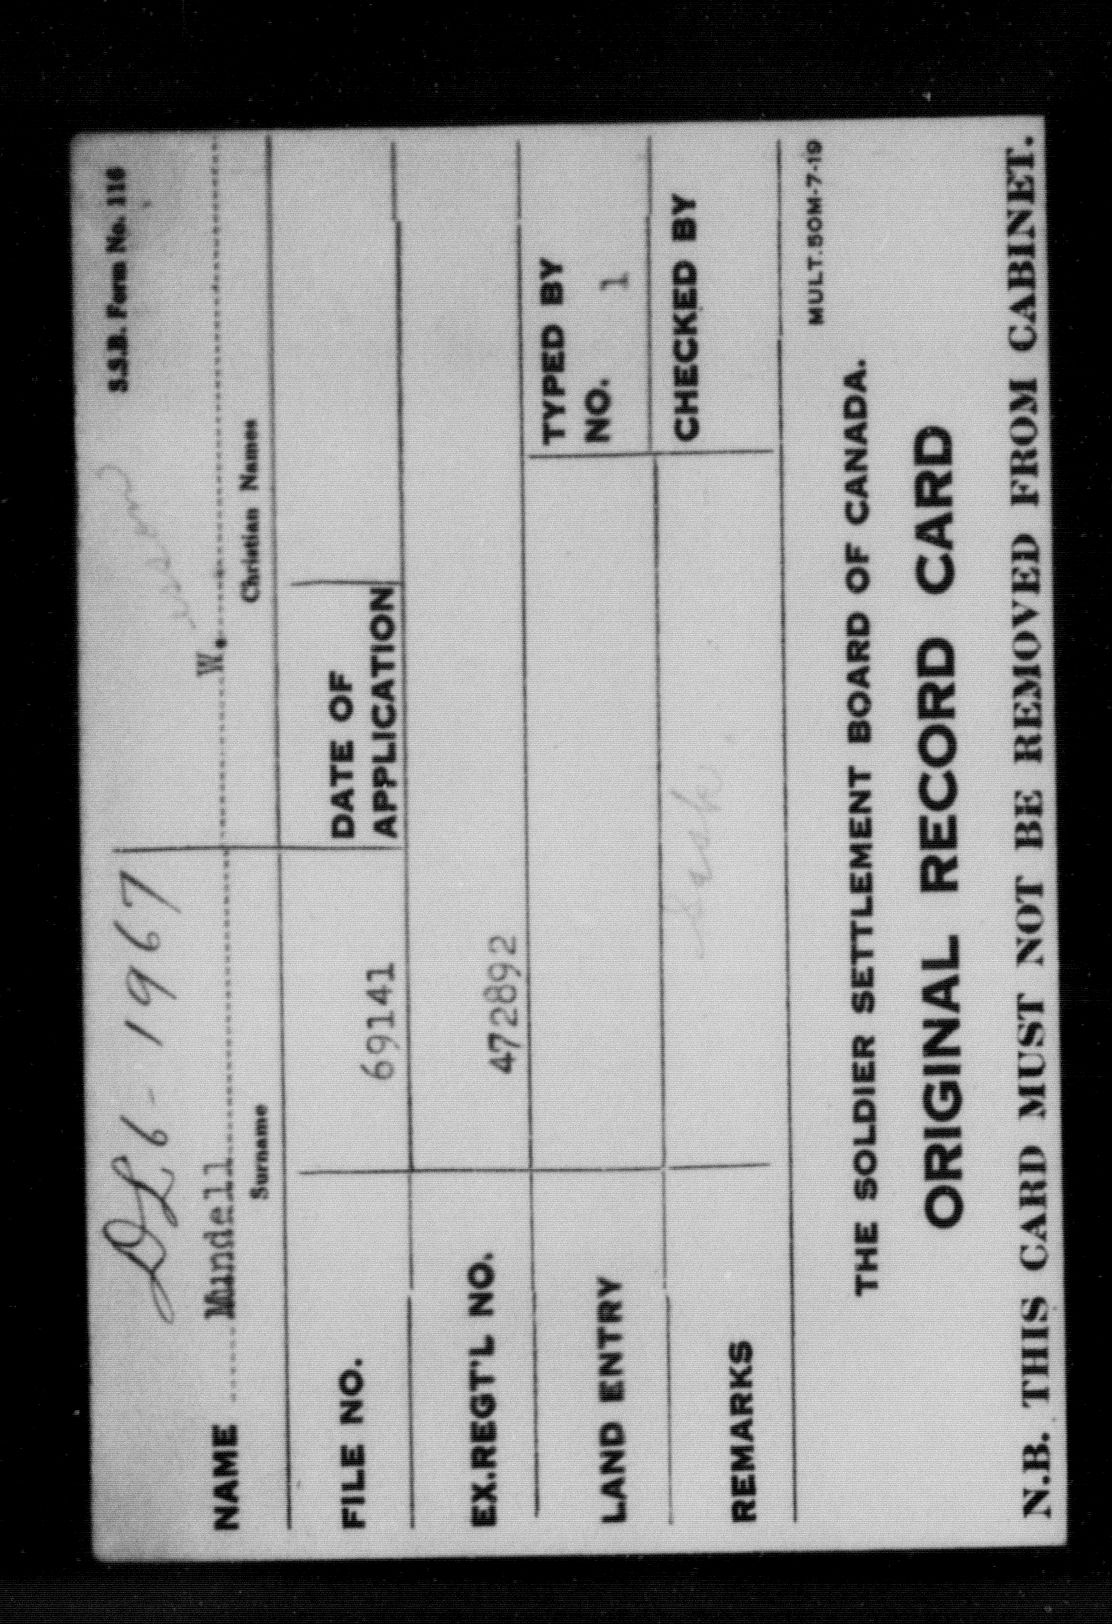 S.S.B. Form No. 116
DL 6-1967
NAME Mundell W.
Surname Christian Names
FILE NO. 69141 DATE OF APPLICATION
EX.REGT'L NO. 472892
LAND ENTRY TYPED BY NO. 1
REMARKS Sask. CHECKED BY
MULT.50M-7-19
THE SOLDIER SETTLEMENT BOARD OF CANADA.
ORIGINAL RECORD CARD
N.B. THIS CARD MUST NOT BE REMOVED FROM CABINET.